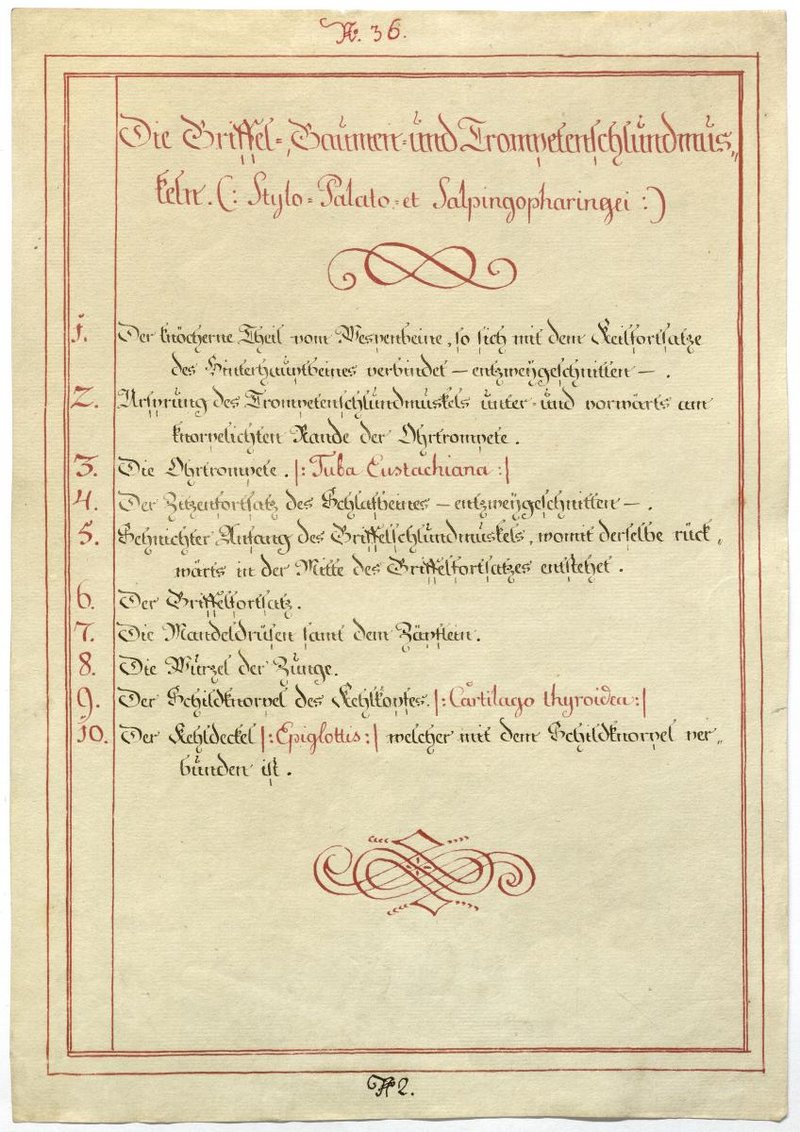 No. 36.
Die Griffel=, Gaumen= und Trompetenschlundmus„
keln. (: Stylo= Palato= et Salpingopharingei :)
1. Der knöcherne Theil vom Wespenbeine, so sich mit dem Keilfortsatze
des Hinterhauptbeines verbindet — entzweygeschnitten — .
2. Ursprung des Trompetenschlundmuskels unter= und vorwärts am
knorpelichten Rande der Ohrtrompete .
3. Die Ohrtrompete . |: Tuba Eustachiana :|
4. Der Zitzenfortsatz des Schlafbeines — entzweygeschnitten — .
5. Sehnichter Anfang des Griffelschlundmuskels, womit derselbe rück„
wärts in der Mitte des Griffelfortsatzes entstehet .
6. Der Griffelfortsatz .
7. Die Mandeldrüsen samt dem Zäpflein .
8. Die Wurzel der Zunge .
9. Der Schildknorpel des Kehlkopfes. |: Cartilago thyroidea :|
10. Der Kehldeckel |: Epiglottis :| welcher mit dem Schildknorpel ver„
bunden ist .
No 2.